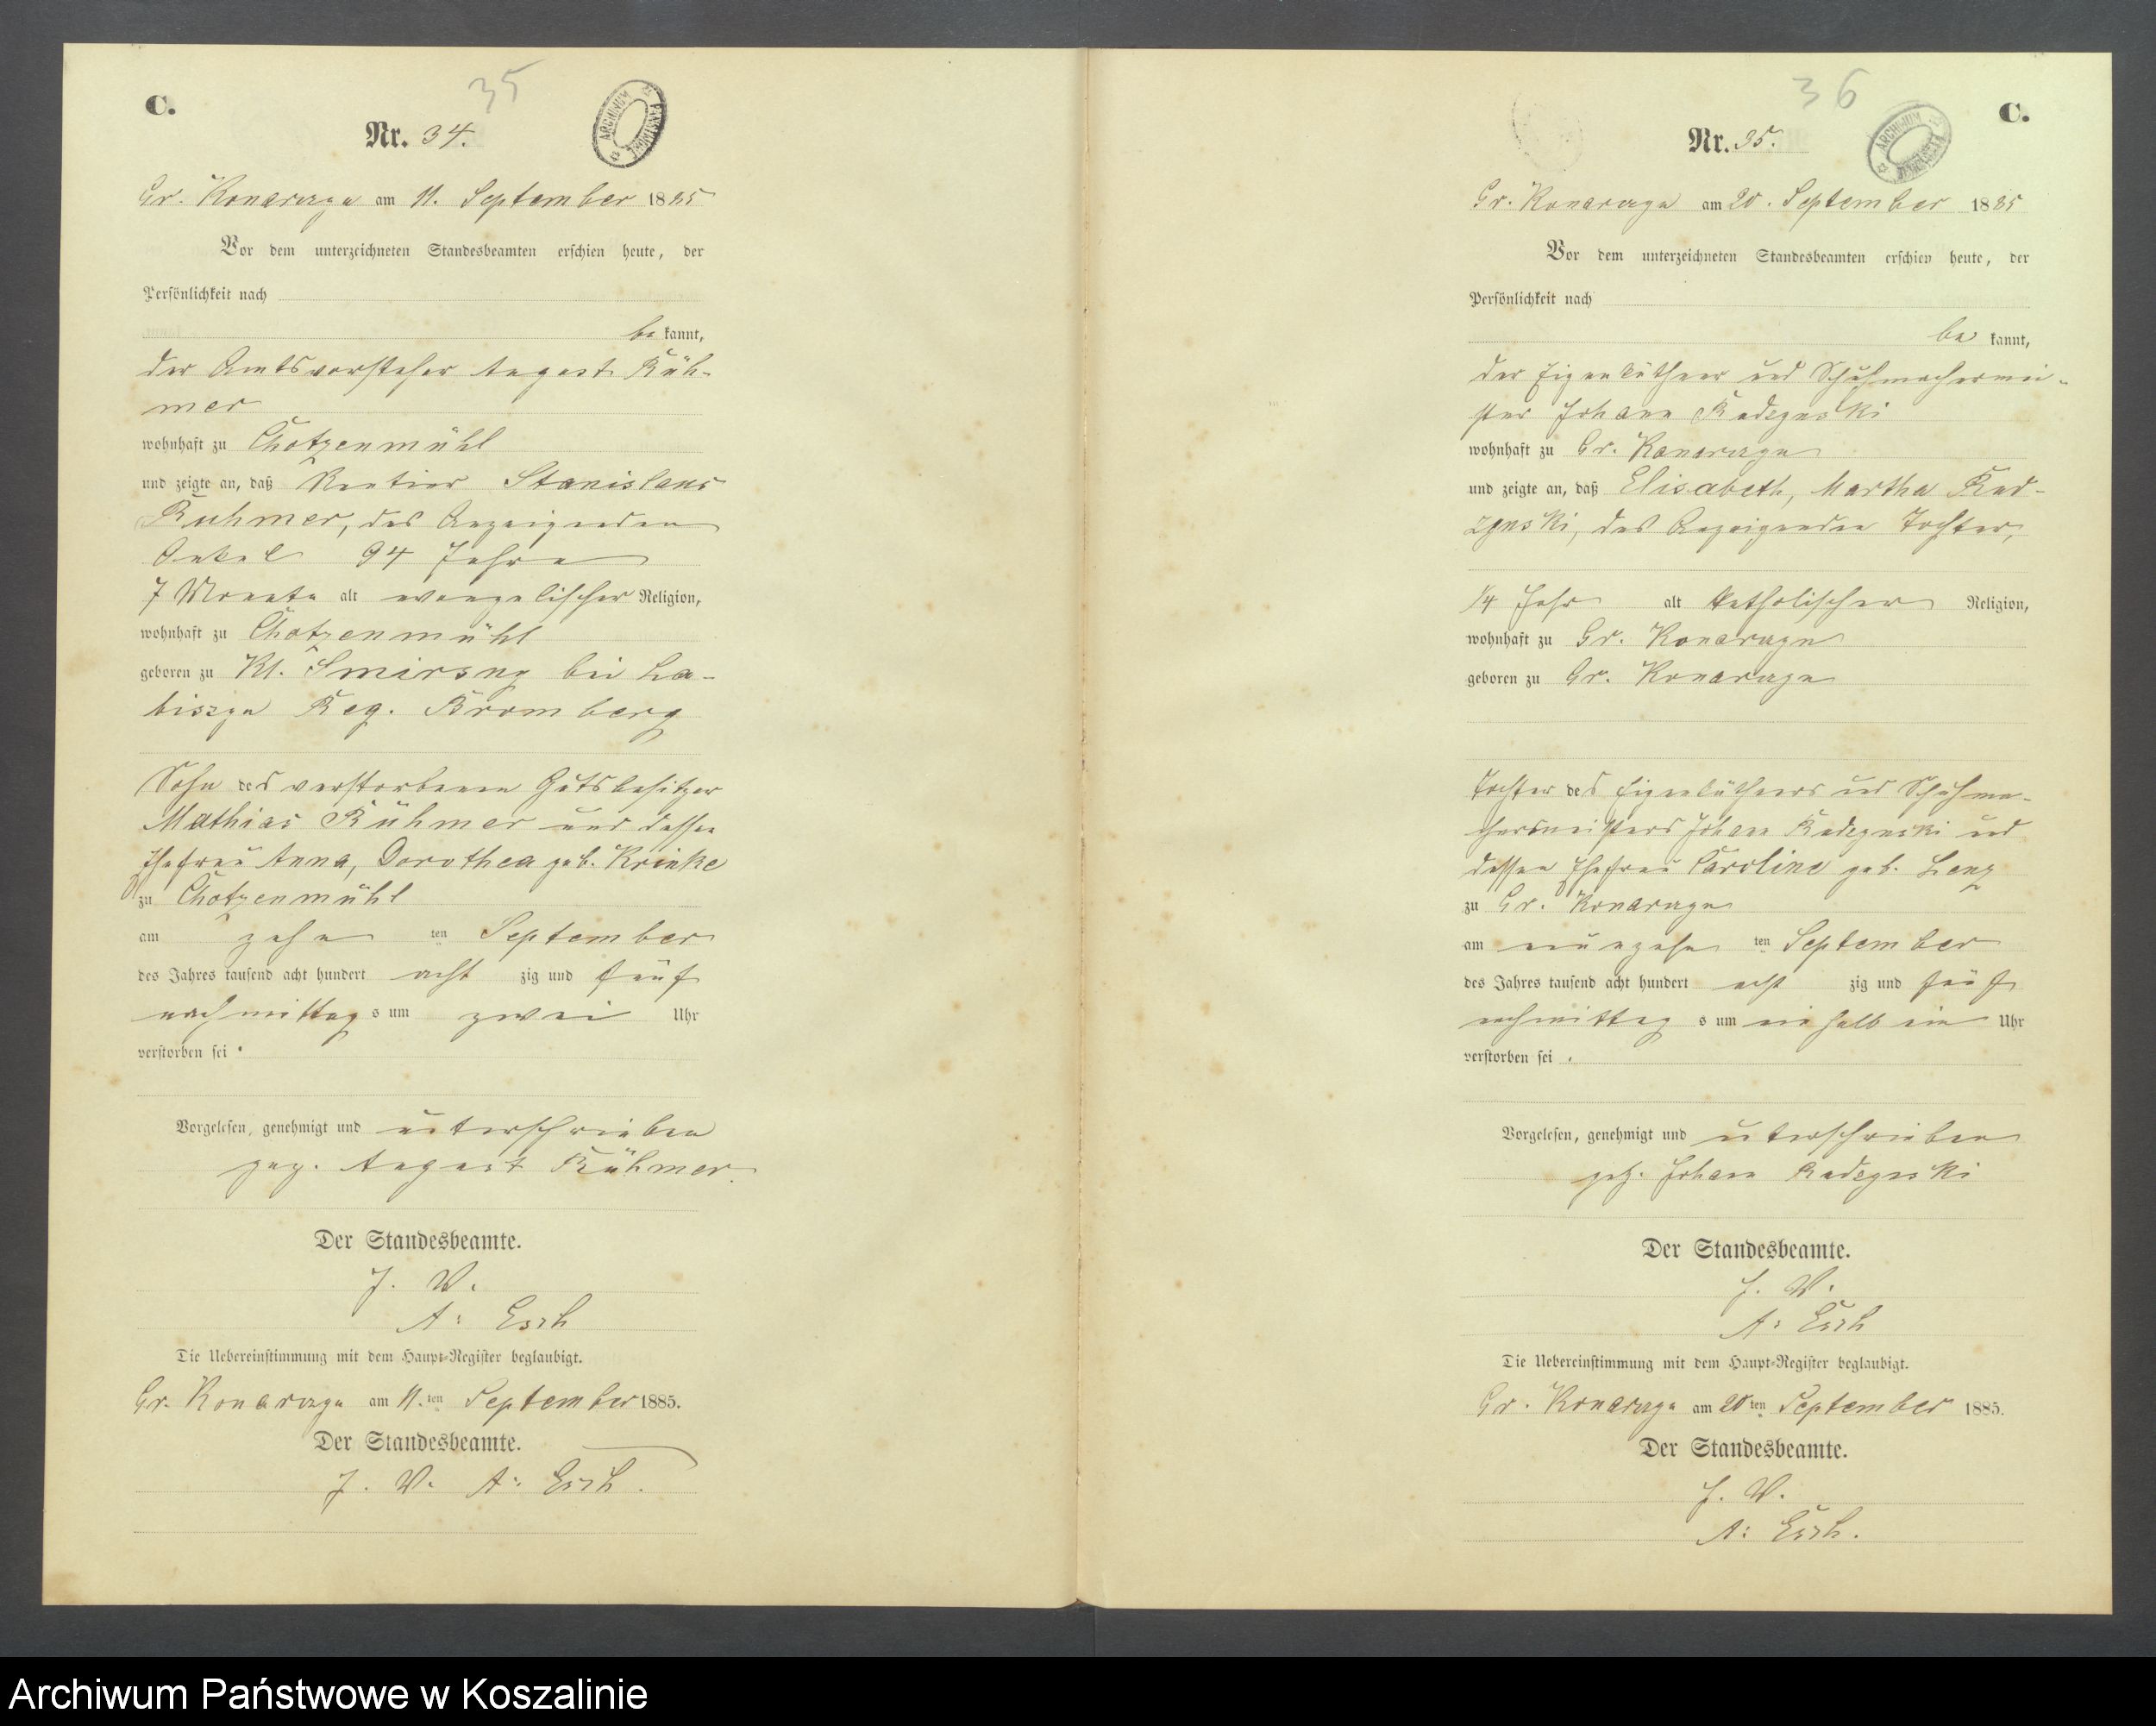 C.
35
Nr. 34.
ARCHIWUM PAŃSTWOWE
Gr. Konarczyn am 11. September 1885
Vor dem unterzeichneten Standesbeamten erschien heute, der
Persönlichkeit nach
be kannt,
der Amtsvorsteher August Rüh-
mer
wohnhaft zu Chotzenmühl
und zeigte an, daß Rentier Stanislaus
Ruhmer, des Anzeigenden
Onkel 94 Jahre
7 Monate alt evangelischer Religion,
wohnhaft zu Chotzenmühl
geboren zu Kl. bei La-
biszyn Reg. Bromberg
Sohn des verstorbenen Gutsbesitzer
Mathias Rühmer und dessen
Ehefrau Anna, Dorothea geb. Krinke
zu Chotzenmühl
am zehn ten September
des Jahres tausend acht hundert acht zig und fünf
nachmittag s um zwei Uhr
verstorben sei.
Vorgelesen, genehmigt und unterschrieben
gez. August Rühmer.
Der Standesbeamte.
J. V.
A. Esch
Die Uebereinstimmung mit dem Haupt-Register beglaubigt.
Gr. Konarczyn am 11. ten September 1885.
Der Standesbeamte.
J. V. A. Esch.
36
C.
Nr. 35.
ARCHIWUM PAŃSTWOWE
Gr. Konarczyn am 20. September 1885
Vor dem unterzeichneten Standesbeamten erschien heute, der
Persönlichkeit nach
be kannt,
der Eigenkäthner und Schuhmachermei-
ster Johann Radzynski
wohnhaft zu Gr. Konarczyn
und zeigte an, daß Elisabeth, Martha Rad-
zynski, des Anzeigenden Tochter,
1/4 Jahr alt katholischer Religion,
wohnhaft zu Gr. Konarczyn
geboren zu Gr. Konarczyn
Tochter des Eigenkäthners und Schuhma-
chermeisters Johann Radzynski und
dessen Ehefrau Caroline geb. Lenz
zu Gr. Konarczyn
am neunzehn ten September
des Jahres tausend acht hundert acht zig und fünf
nachmittag s um ein halb ein Uhr
verstorben sei.
Vorgelesen, genehmigt und unterschrieben
gez. Johann Radzynski
Der Standesbeamte.
J. V.
A. Esch
Die Uebereinstimmung mit dem Haupt-Register beglaubigt.
Gr. Konarczyn am 20 ten September 1885.
Der Standesbeamte.
J. V.
A. Esch.
Archiwum Państwowe w Koszalinie